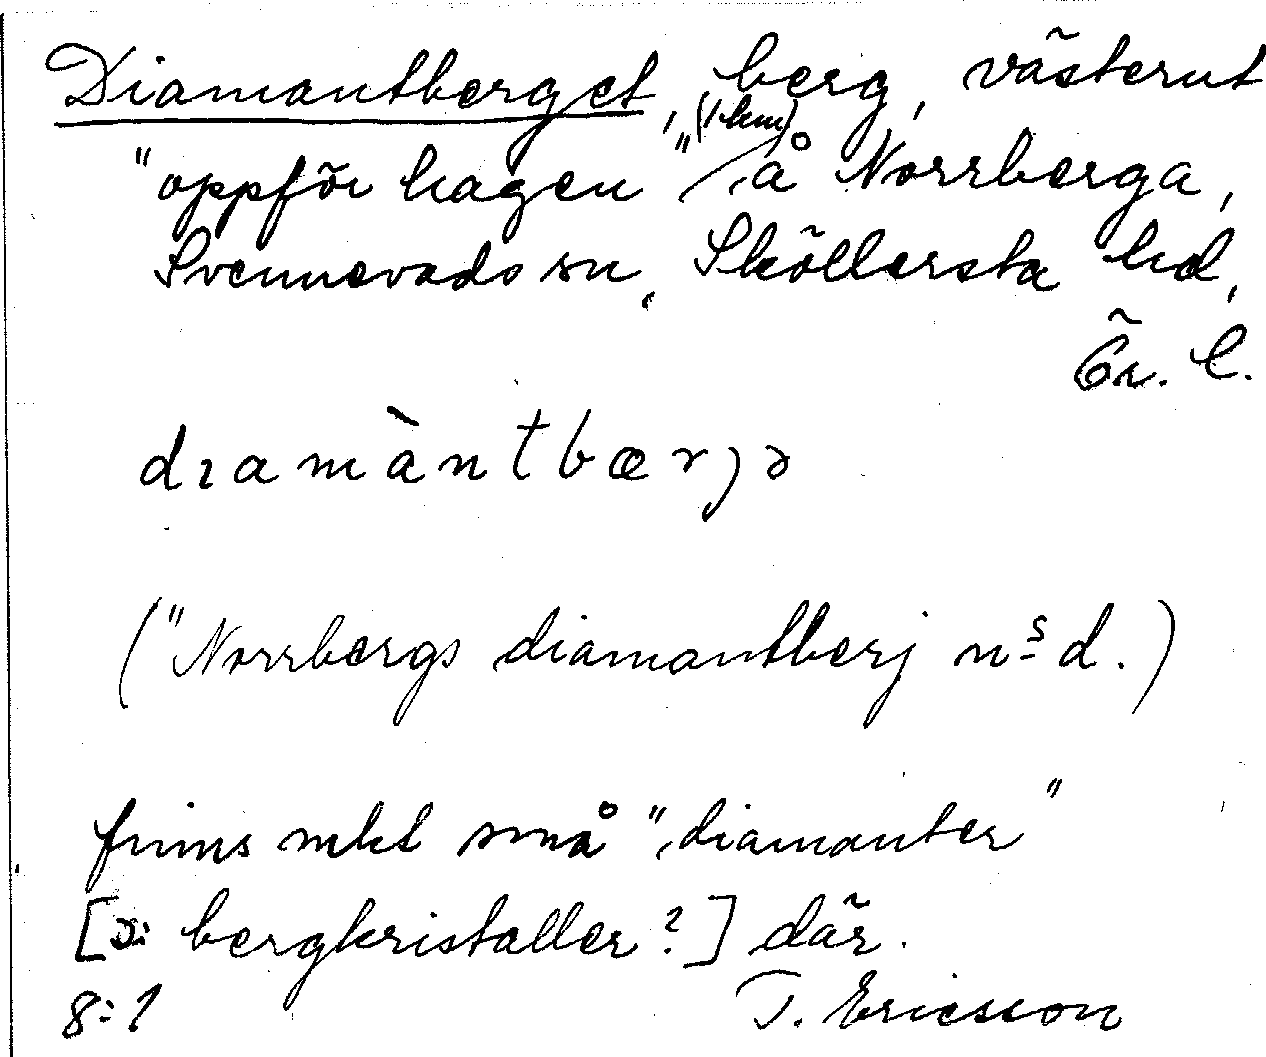 Diamantberget, berg, västerut
"oppför hagen" (1 km) å Norrberga,
Svennevads sn, Sköllersta hd,
Ör. l.
dıamàntbærȷə
("Norrbergs diamantberj n⁠s d.)
finns mkt små "diamanter"
[ɔ: bergkristaller?] där.
8:1 T. Ericsson